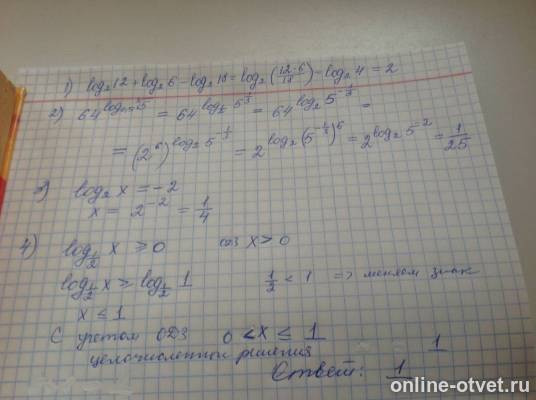 1) log₂12 + log₂6 - log₂18 = log₂(12·6/18) = log₂4 = 2
= 64^(log₂5^(-1/3)) =
= (2⁶)^(log₂5^(-1/3)) = 2^(log₂(5^(-1/3))⁶) = 2^(log₂5^(-2)) = 1/25
3) log₂ x = -2
x = 2⁻² = 1/4
4) log_(1/2) x ≥ 0 ОДЗ x > 0
log_(1/2) x ≥ log_(1/2) 1 1/2 < 1 => меняем знак
x ≤ 1
С учетом ОДЗ 0 < x ≤ 1
целочисленные решения 1
Ответ: 1
online-otvet.ru